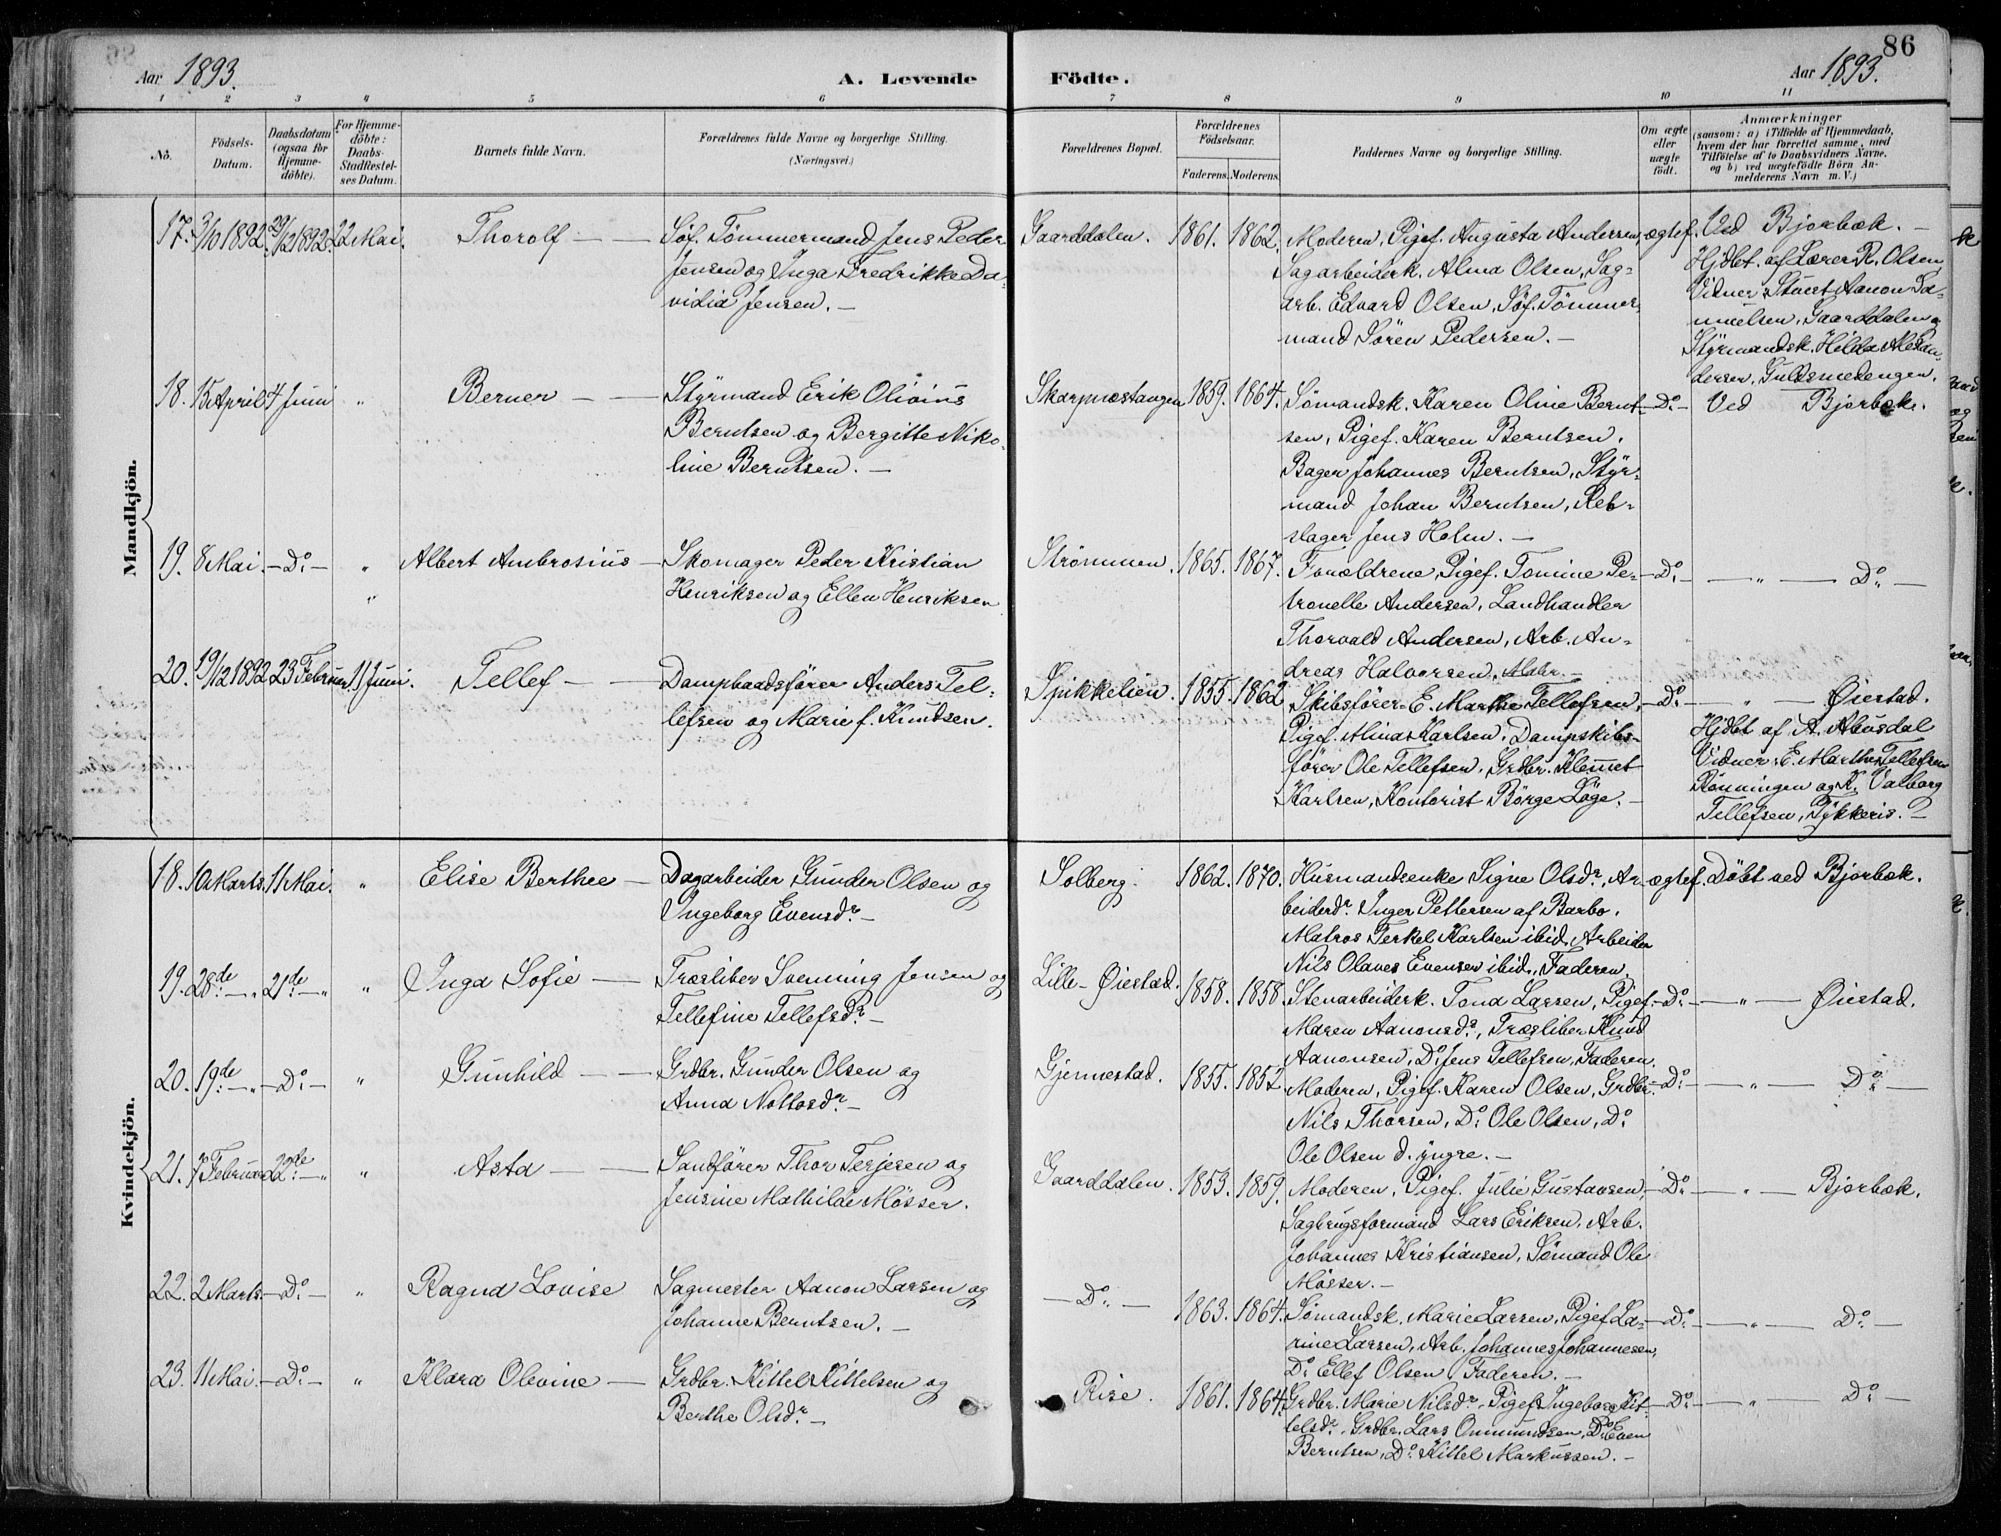 86
Aar 1893. A. Levende Födte. Aar 1893.
1 2 3 4 5 6 7 8 9 10 11
No. Födsels-Datum. Daabsdatum (ogsaa for Hjemme-döbte). For Hjemme-döbte: Daabs-Stadfæstel-ses Datum. Barnets fulde Navn. Forældrenes fulde Navne og borgerlige Stilling. (Næringsvei.) Forældrenes Bopæl. Forældrenes Födselsaar. Faderens. Moderens. Faddernes Navne og borgerlige Stilling. Om ægte eller uægte födt. Anmærkninger
(saasom: a) i Tilfælde af Hjemmedaab,
hvem der har forrettet samme, med
Tilföielse af to Daabsvidners Navne,
og b) ved uægtefödte Börn An-
melderens Navn m. V.)
Mandkjön.
17. 3/10 1892. 29/12 1892. 22 Mai. Thorolf — Søf. Tömmermand Jens Peder
Jensen og Inga Fredrikke Da-
vidia Jensen. —
Gaarddalen. 1861. 1862. Moderen, Pigef. Augusta Andersen,
Sagarbeiderk. Alma Olsen, Sag-
arb. Edvard Olsen, Søf. Tömmer-
mand Sören Pedersen. —
ægtef. Ved Bjorbæk. —
Hjdbt. af Lærer R. Olsen
Vidner: Stuert Aanon Sa-
muelsen, Gaarddalen og
Styrmandsk. Hilda
Guldsmedengen.
18. 15 April 4 Juni " Berner — Styrmand Erik Olivius
Berntsen og Bergitte Niko-
line Berntsen. —
Skarpnæstangen 1859. 1864. Sömandsk. Karen Oline Bernt-
sen, Pigef. Karen Berntsen,
Bager Johannes Berntsen, Styr-
mand Johan Berntsen, Reb-
slager Jens Holm. —
Do — Ved Bjorbæk.
19. 8 Mai. — Do — " Albert Ambrosius — Skomager Peder Kristian
Henriksen og Ellen Henriksen
Strömmen. 1865. 1867. Forældrene, Pigef. Tomine Pe-
tronelle Andersen, Landhandler
Thorvald Andersen, Arb. An-
dreas Halvorsen,
— Do — " — Do —
20. 19/12 1892 23 Februar 11 Juni. Tellef — Dampbaadsfører Anders Tel-
lefsen og Marie f. Knudsen.
Spikkelien. 1855. 1862 Skibsförer E. Marthe Tellefsen,
Pigef. Mina Karlsen, Dampskibs-
fører Ole Tellefsen, Grdbr. Klemet
Karlsen, Kontorist Börge Löge. —
— Do — " — Øiestad.
Hjdbt af A. Abusdal
Vidner: E. Marthe Tellefsen
Rönningen og K. Valborg
Tellefsen, —
Kvindekjön.
18. 10 Marts. 11 Mai. " Elise Berthee — Dagarbeider Gunder Olsen og
Ingeborg Evensdr —
Solberg. 1862. 1870. Husmandsenke Signe Olsdr, Ar-
beiderdr. Inger Pettersen af Barbo.
Matros Terkel Karlsen ibid. Arbeider
Nils Olaves Evensen ibid. Faderen.
ægtef. Döbt ved Bjorbæk.
19. 28de — " 21de — " " Inga Sofie — Træsliber Svenning Jensen og
Tellefine Tellefsdr —
Lille-Øiestad. 1858. 1858. Stenarbeiderk. Tona Larsen, Pigef.
Maren Aanonsdr, Træsliber Knud
Aanonsen, Do Jens Tellefsen, Faderen.
— Do — " — Øiestad.
20. 19de — " — Do — " Gunhild — Grdbr. Gunder Olsen og
Anna Nottosdr —
Gjennestad. 1855. 1852. Moderen, Pigef. Karen Olsen, Grdbr.
Nils Thorsen, Do Ole Olsen, Do
Ole Olsen d. yngre. —
— Do — " — Do —
21. 7 Februar 22de — " " Asta — Sandfører Thor Terjesen og
Jensine Mathilde Mösser.
Gaarddalen. 1853. 1859. Moderen, Pigef. Julie Gustavsen,
Sagbrugsformand Lars Eriksen, Arb.
Johannes Kristiansen, Sömand Ole
Mösser. —
— Do — " — Bjorbæk.
22. 2 Marts. — Do — " Ragna Lovise Sagmester Aanon Larsen og
Johanne Berntsen. —
— Do — 1863. 1864. Sömandsk. Marie Larsen, Pigef. La-
rine Larsen, Arb. Johannes Johannesen,
Do Ellef Olsen Faderen. —
— Do — " — Do —
23. 11 Mai. — Do — " Klara Olevine — Grdbr. Kittel Kittelsen og
Berthe Olsdr —
Rise. 1861. 1864. Grdbr. Marie Nilsdr, Pigef. Ingeborg Kit-
telsdr, Grdbr. Lars Ommundsen, Do Even
Berntsen, Do Kittel Markussen. —
— Do — " — Do —